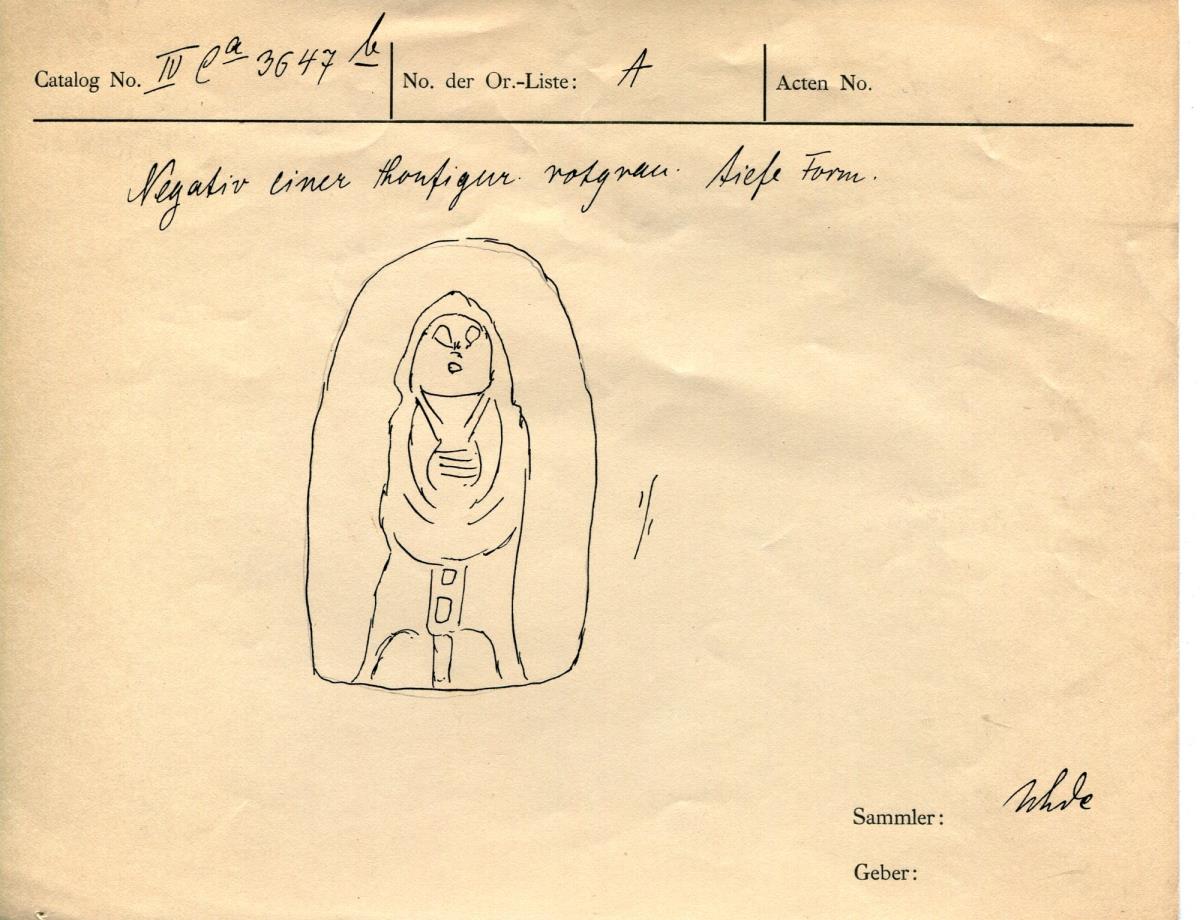 Catalog No. IV Ca 3647 b No. der Or.-Liste: A Acten No.
Negativ einer Thonfigur. rotgrau. tiefe Form.
1/1
Sammler: Uhde
Geber: